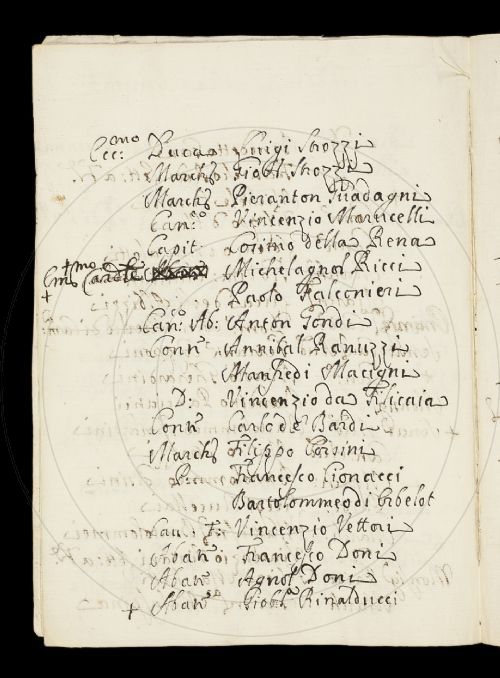 Ecc:mo Duca Luigi Strozzi
Marchs Giobt Strozzi
Marchs Pieranton Guadagni
Can:co Vincenzio Marucelli
Capit Cosimo Della Rena
Em:mo Cardle Michelagnol Ricci
+ Paolo Falconieri
Can:co Ab: Anton Gondi
Conte Annibal Ranuzzi
Manfredi Macigni
D: Vincenzio da Filicaia
Conte Carlo de Bardi
Marchs Filippo Corsini
P: Francesco Cionacci
Bartolommeo di Erbelot
Cau F: Vincenzio Vettori
Abate Francesco Doni
Abate Agnol Doni
+ Abate Giobta Rinalducci